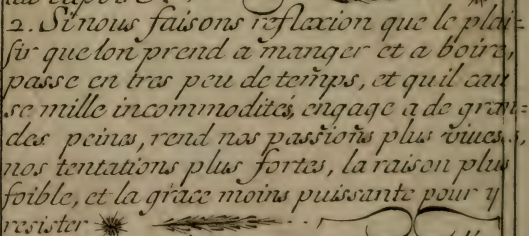 2. Si nous faisons reflexion que le plai=
sir que lon prend a manger et a boire,
passe en tres peu de temps, et quil cau
se mille incommodités, engage a de gran=
des peines, rend nos passions plus viues,
nos tentations plus fortes, la raison plus
foible, et la grace moins puissante pour y
resister